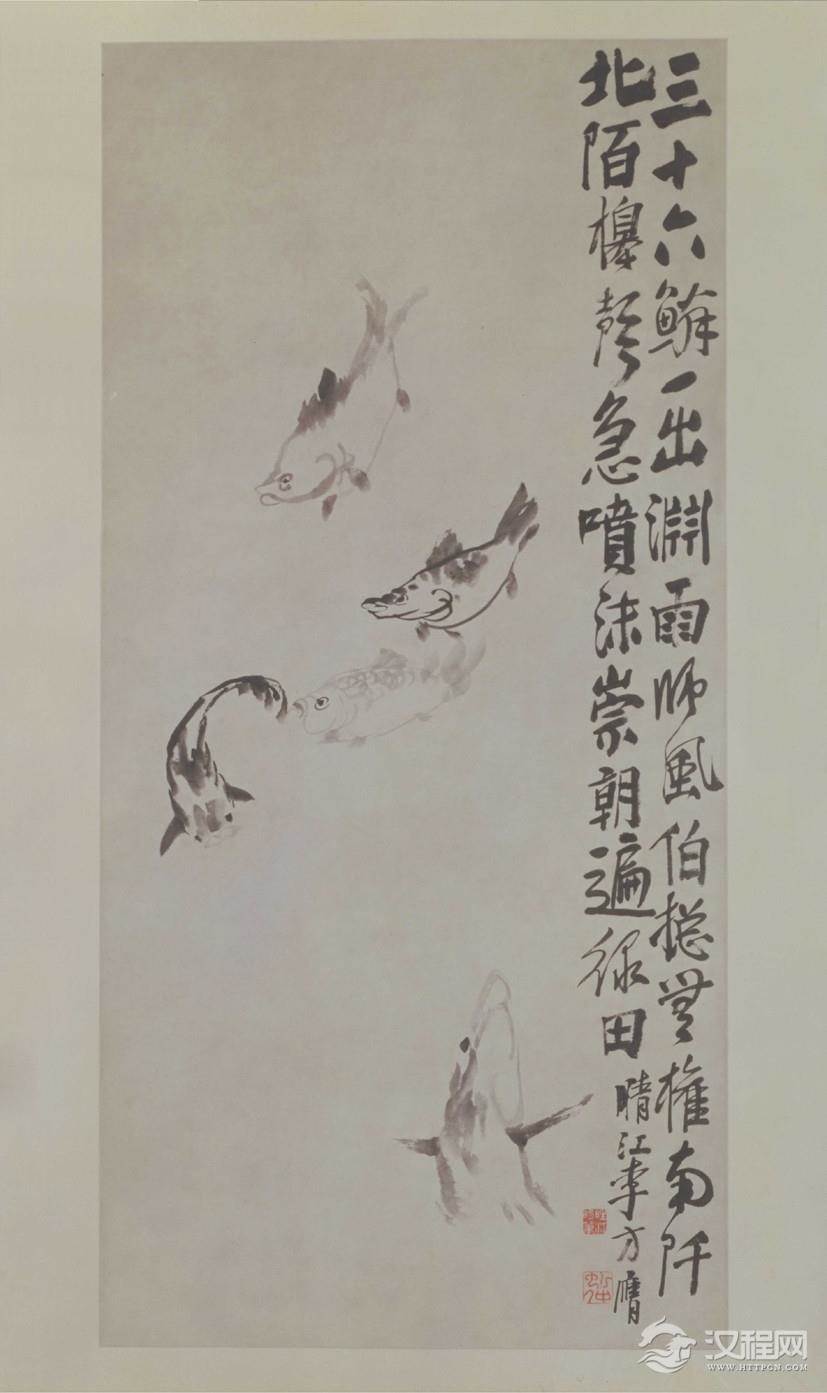 三十六鱗一出淵雨師風伯摠無權南阡
北陌槔聲急噴沫崇朝遍綠田
晴江李方膺
汉程网
WWW.HTTPCN.COM